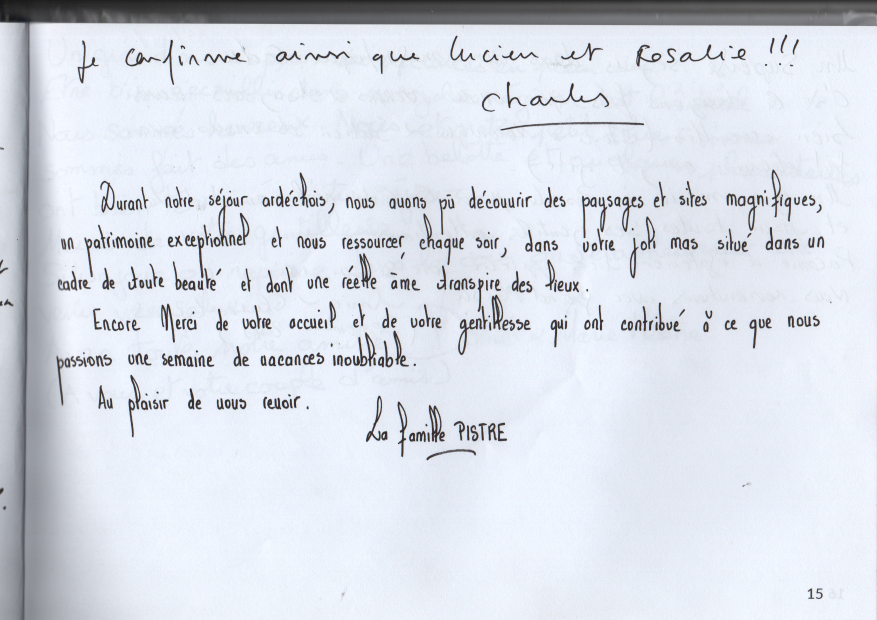 Je confirme ainsi que Lucien et Rosalie !!!
Charles
Durant notre séjour ardéchois, nous avons pû découvrir des paysages et sites magnifiques,
un patrimoine exceptionnel et nous ressourcer chaque soir, dans votre joli mas situé dans un
cadre de toute beauté et dont une réelle âme transpire des lieux.
Encore Merci de votre accueil et de votre gentillesse qui ont contribué à ce que nous
passions une semaine de vacances inoubliable.
Au plaisir de vous revoir.
La famille PISTRE
15